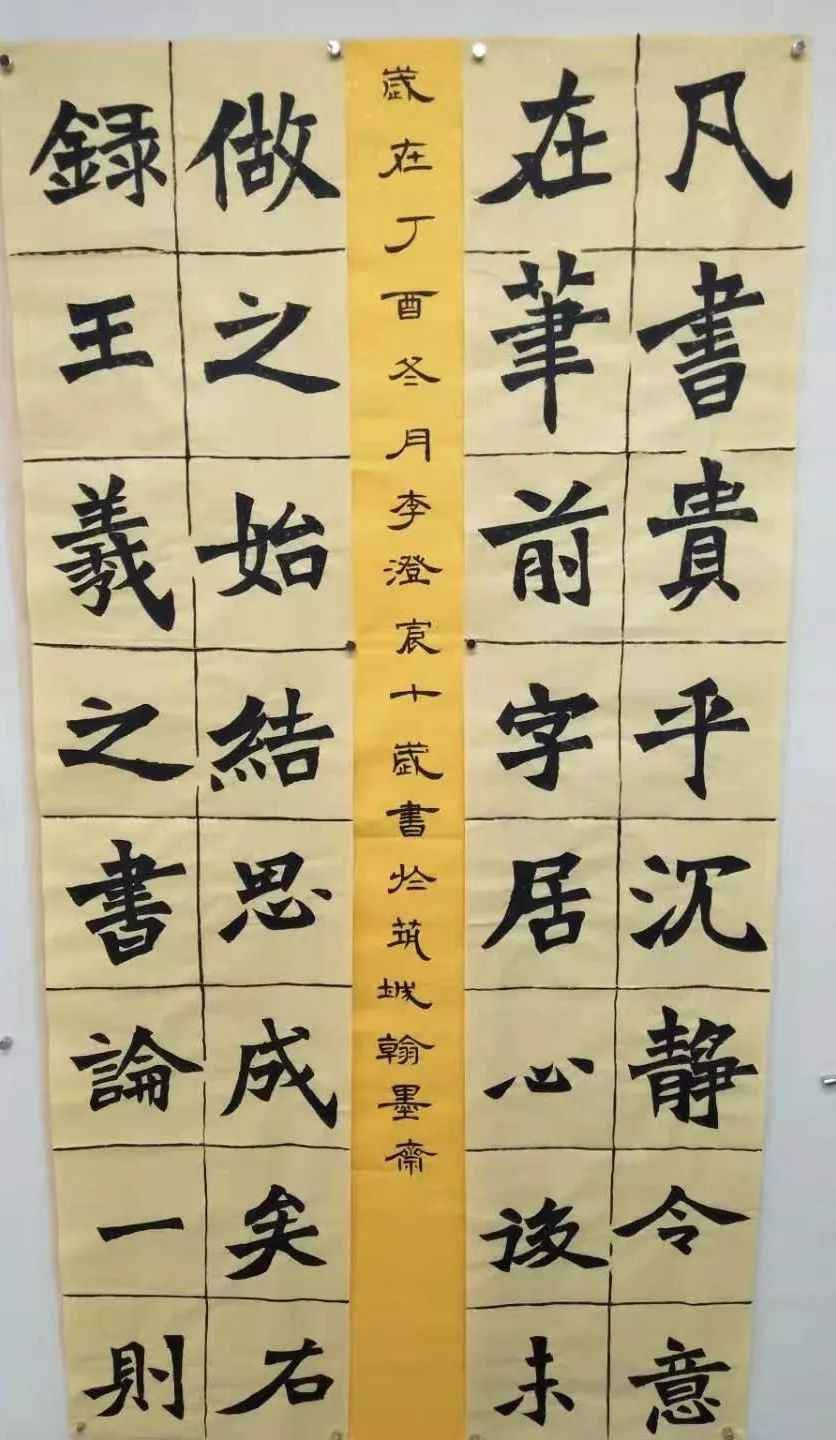 凡書貴乎沉静令意
在筆前字居心後未
做之始結思成矣右
録王羲之書論一則
歲在丁酉冬月李澄宸十歲書於筑城翰墨齋